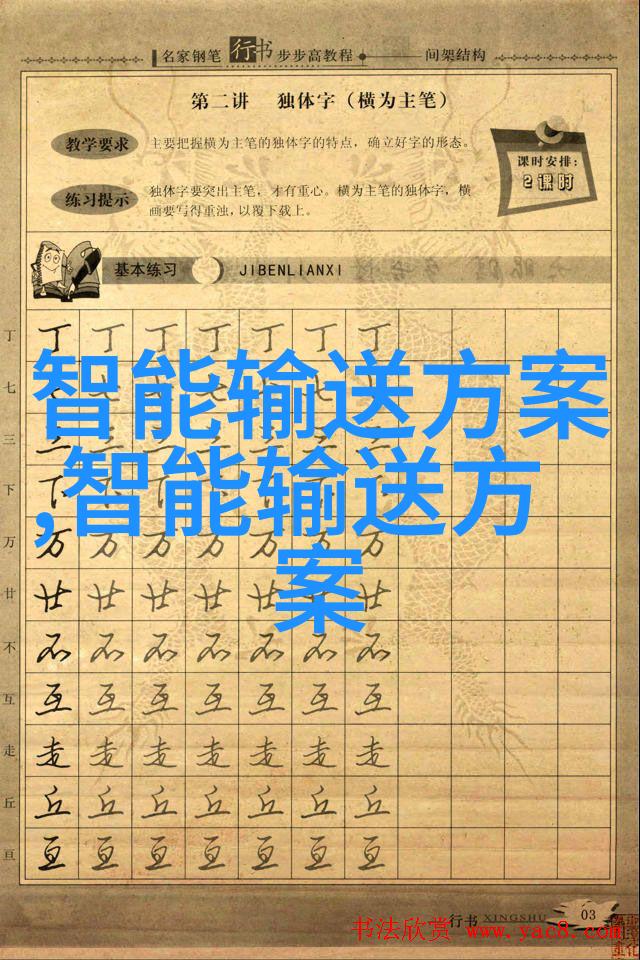 名家钢笔行书步步高教程 间架结构
第二讲 独体字（横为主笔）
教学要求 主要把握横为主笔的独体字的特点，确立好字的形态。
课时安排：
2课时
练习提示 独体字要突出主笔，才有重心。横为主笔的独体字，横
画要写得重浊，以覆下载上。
基本练习 JIBENLIANXI
丁 丁 丁 丁 丁 丁 丁 丁
七
智能输送方案
三
,智能输送方
下
案
万 万 万 万 万 万 万 万
廿 廿 廿 廿 廿 廿 廿 廿
不 不 不 不 不 不 不 不
互 互 互 互 互 互 互 互
走 走 走 走 走 走 走 走
丘 丘 丘 丘 丘 丘 丘 丘
亘 亘 亘 亘 亘 亘 亘 亘
行书 XINGSHU 03
书法欣赏 www.yac8.com